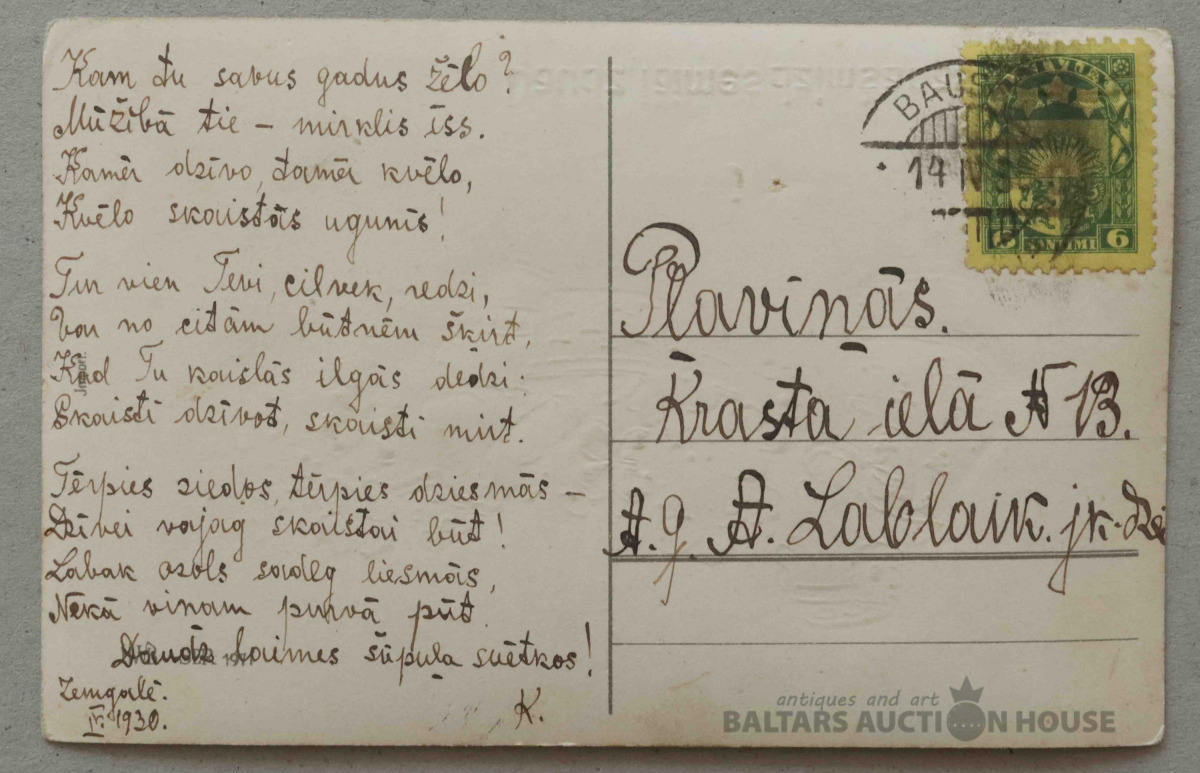 Kam tu savus gadus žēlo?
Mūžībā tie – mirklis īss.
Kamēr dzīvo, tamēr kvēlo,
Kvēlo skaistās ugunīs!
Tur vien Tevi, cilvek, redzi,
Var no citām būtnēm šķirt,
Kad Tu kaislās ilgās dēdzi:
Skaisti dzīvot, skaisti mirt.
Tērpies ziedos, tērpies dziesmās –
Dzīvei vajag skaistai būt!
Labak ozols sadeg liesmās,
Nekā viņam purvā pūt.
Daudz laimes šūpuļa svētkos!
Zemgalē.
IV. 1930.
K.
Import.
BAUS
14 IV 3
LATVIJA
6 SANTIMI 6
Pļaviņās.
Krasta ielā № 13.
A. g. A. Lablaik. jk-dzei
antiques and art
BALTARS AUCTION HOUSE